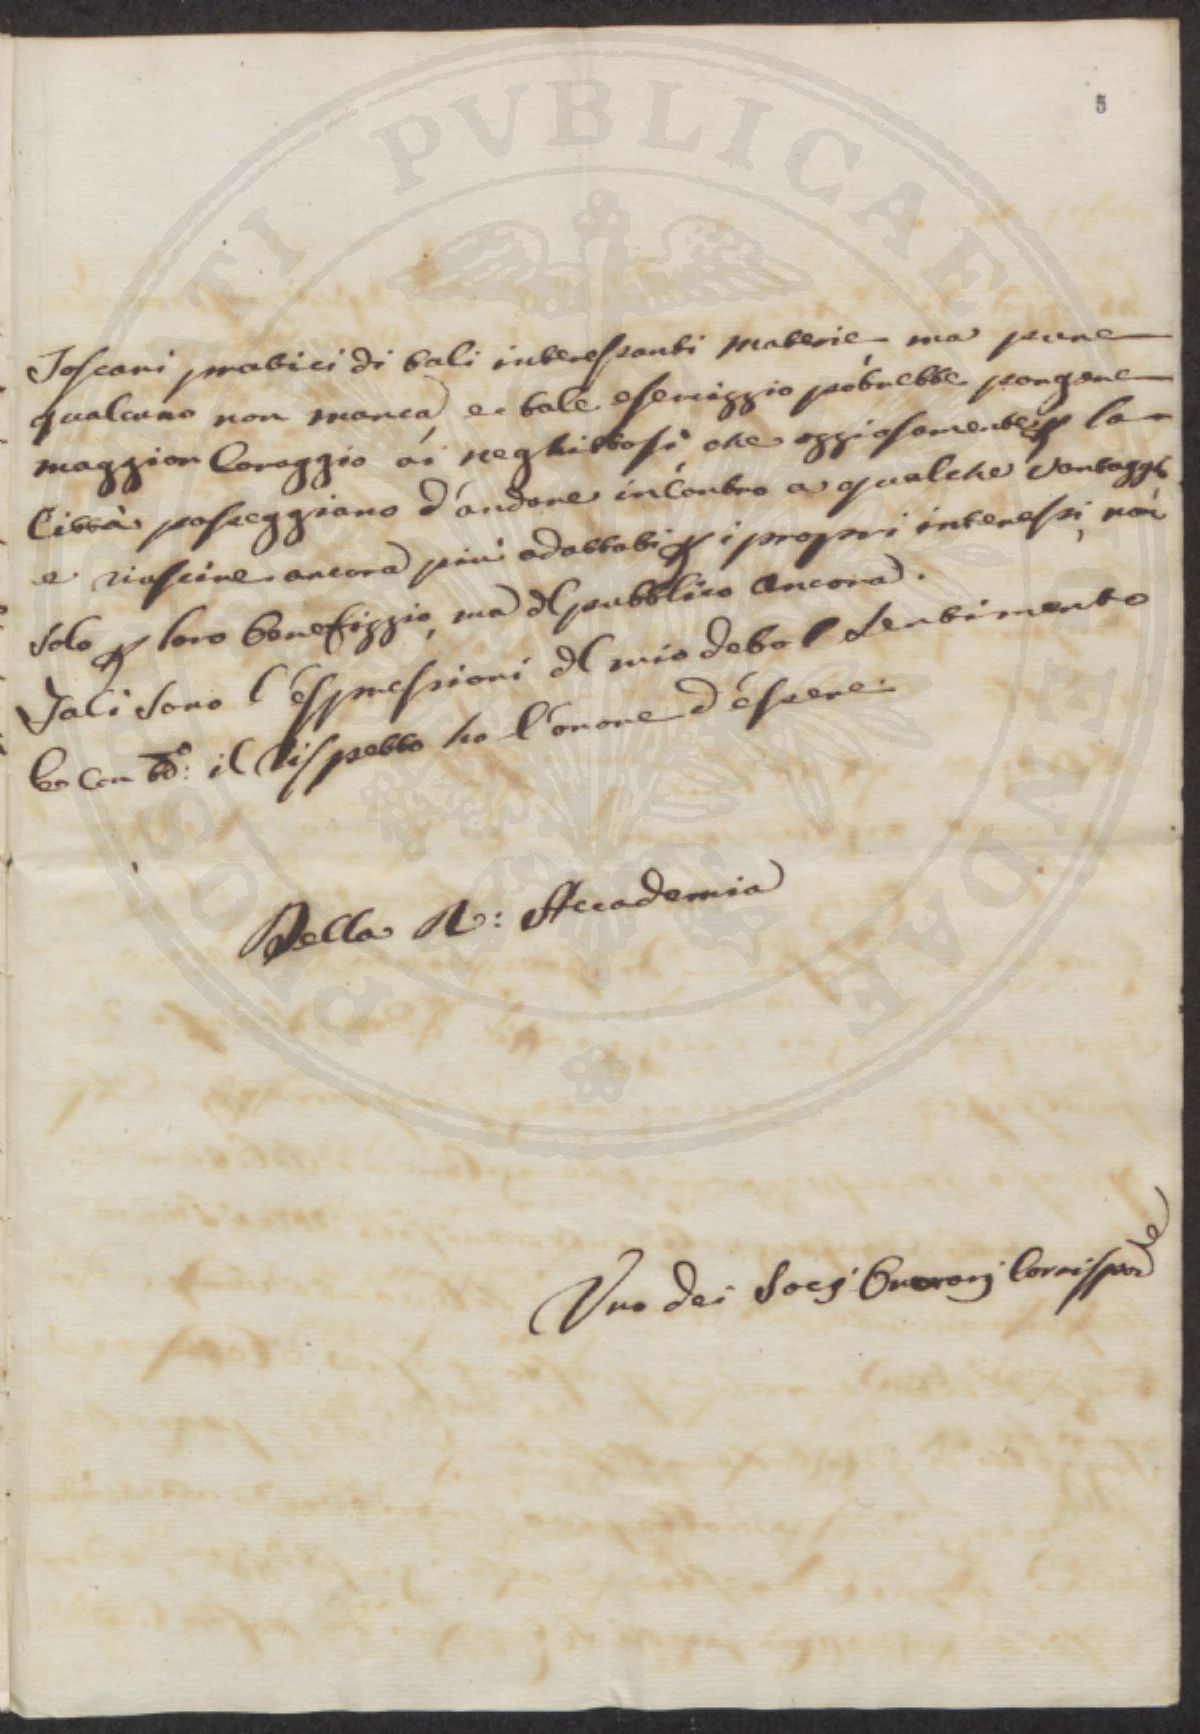 5
Toscani pratici di tali interessanti materie ma pure
qualcuno non manca, e tale esercizzio potrebbe porgere
maggior Coraggio ai neghittosi che ozziosamente p la
Città passeggiano d'andare incontro a qualche vantaggio
e riuscire ancora più adattabi p i propri interessi, non
solo p loro benefizzio, ma dl pubblico ancora.
Tali sono l'espressioni dl mio debol sentimento
e con tto: il rispetto ho l'onore d'essere
Della R: Accademia
Uno dei Socj Onorarj Corrisponde
PROSPERITATI PVBLICAE AVGENDAE